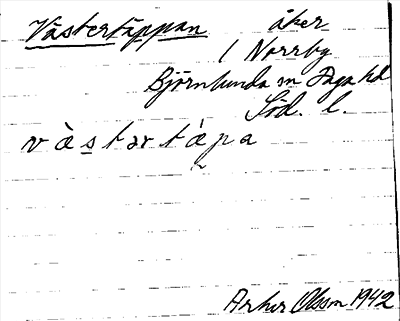 Västertäppan åker
i Norrby
Björnlunda sn Daga hd
Söd. l.
væ̀stərtæ̀pa
Arthur Olsson 1942